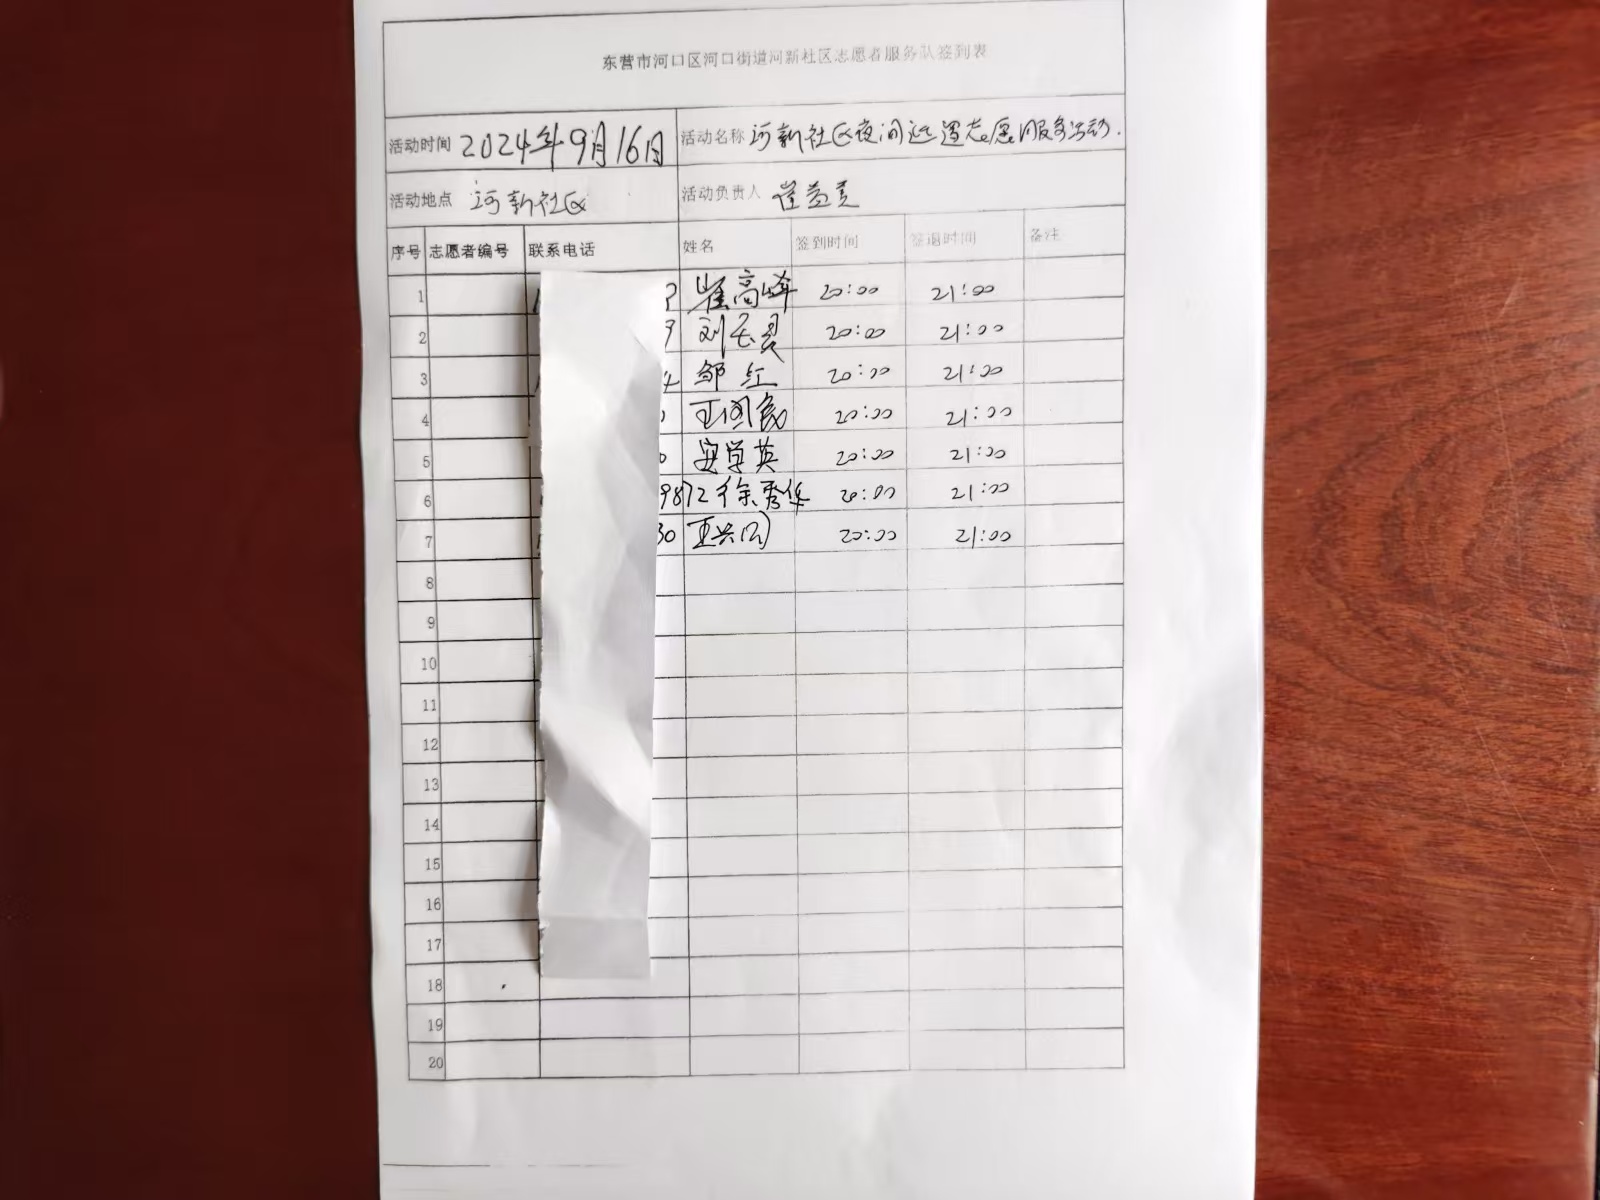 东营市河口区河口街道河新社区志愿者服务队签到表
活动时间 2024年9月16日 活动名称 河新社区夜间巡逻志愿服务活动.
活动地点 河新社区 活动负责人 崔益
序号 志愿者编号 联系电话 姓名 签到时间 签退时间 备注
1 崔高峰 20:00 21:00
2 9 刘 20:00 21:00
3 4 邹红 20:00 21:00
4 王 20:00 21:00
5 0 安学英 20:00 21:00
6 9872 徐秀华 20:00 21:00
7 30 王兴 20:00 21:00
8
9
10
11
12
13
14
15
16
17
18
19
20